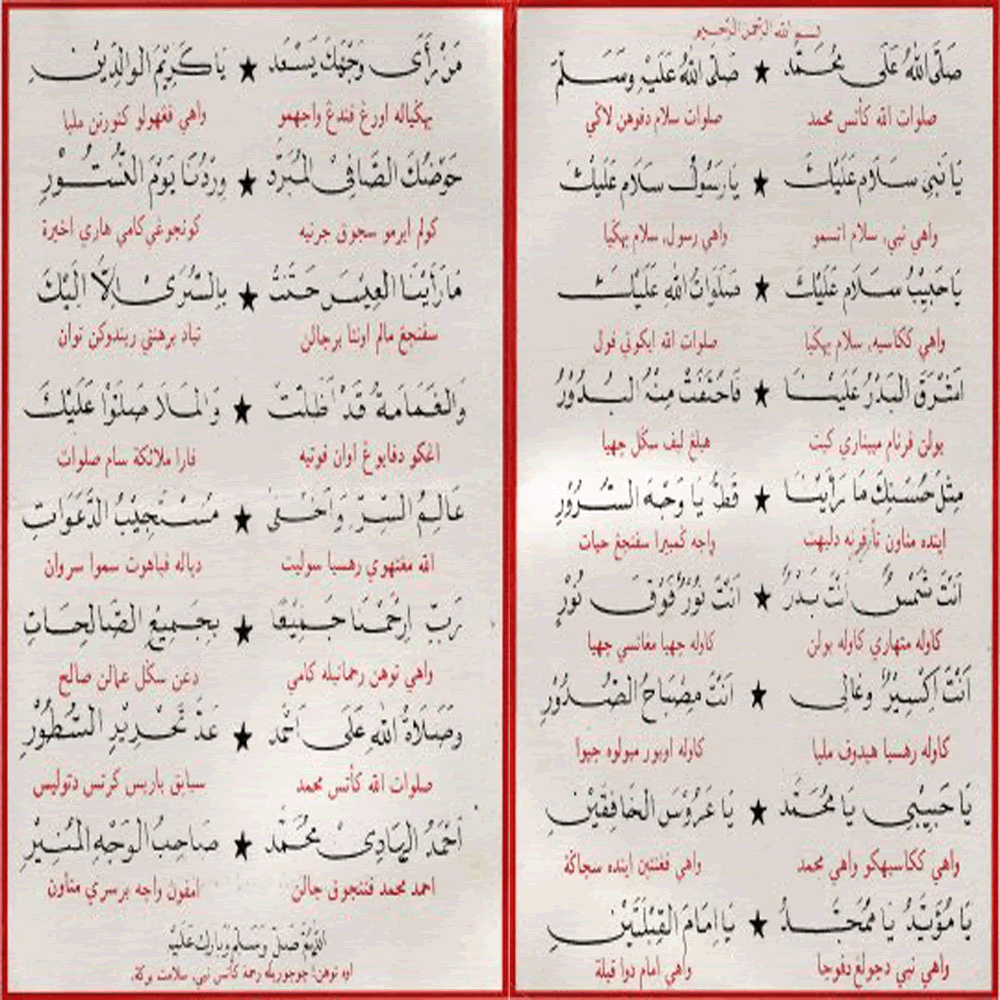 بسم الله الرحمن الرحيم
صَلَّى اللهُ عَلَى مُحَمَّد ★ صَلَّى اللهُ عَلَيْهِ وَسَلَّمْ
صلوات الله كأتس محمد صلوات سلام دفوهن لاڬي
يَا نَبِي سَلَام عَلَيْكَ ★ يَا رَسُولْ سَلَام عَلَيْكَ
واهي نبي، سلام اتسمو واهي رسول، سلام بهڬيا
يَا حَبِيْبُ سَلَام عَلَيْكَ ★ صَلَوَاتُ اللهِ عَلَيْكَ
واهي ككاسيه، سلام بهڬيا صلوات الله ايكوتي فول
اَشْرَقَ الْبَدْرُ عَلَيْنَا ★ فَاخْتَفَتْ مِنْهُ الْبُدُوْرُ
بولن فرنام مپيناري كيت هيلڠ ليف سڬل چهيا
مِثْلَ حُسْنِكَ مَا رَأَيْنَا ★ قَطُّ يَا وَجْهَ السُّرُوْرِ
اينده مناون تأفرنه دليهت واجه ڬمبيرا سفنجڠ حيات
اَنْتَ شَمْسٌ اَنْتَ بَدْرٌ ★ اَنْتَ نُوْرٌ فَوْقَ نُوْرٍ
كاوله متهاري كاوله بولن كاوله چهيا مغاتسي چهيا
اَنْتَ اِكْسِيْرٌ وَغَالِي ★ اَنْتَ مِصْبَاحُ الصُّدُوْرِ
كاوله رهسيا هيدوف مليا كاوله اوبور مپولوه جيوا
يَا حَبِيْبِي يَا مُحَمَّد ★ يَا عَرُوْسَ الْخَافِقَيْنِ
واهي ككاسيهكو واهي محمد واهي فغنتين اينده سجاڬة
يَا مُؤَيَّدُ يَا مُمَجَّدُ ★ يَا اِمَامَ الْقِبْلَتَيْنِ
واهي نبي دجونجوڠ دفوجا واهي امام دوا قبلة
مَنْ رَأَى وَجْهَكَ يَسْعَدْ ★ يَا كَرِيْمَ الْوَالِدَيْنِ
بهڬياله اورڠ فندڠ واجهمو واهي فڠهولو كتورنن مليا
حَوْضُكَ الصَّافِى الْمُبَرَّدْ ★ وِرْدُنَا يَوْمَ النُّشُوْرِ
كولم ايرمو سجوق جرنيه كونجوڠي كامي هاري اخيرة
مَا رَأَيْنَا الْعِيْسَ حَنَّتْ ★ بِالسُّرَى اِلَّا اِلَيْكَ
سفنجڠ مالم اونتا برجالن تياد برهنتي ريندوكن توان
وَالْغَمَامَةُ قَدْ اَظَلَّتْ ★ وَالْمَلَا صَلَّوْا عَلَيْكَ
اڠكو دفايوڠ اوان فوتيه فارا ملائكة سام صلوات
عَالِمُ السِّرِّ وَاَخْفَى ★ مُسْتَجِيْبُ الدَّعَوَاتِ
الله مڠتهوي رهسيا سوليت دياله فپاهوت سموا سروان
رَبِّ ارْحَمْنَا جَمِيْعًا ★ بِجَمِيْعِ الصَّالِحَاتِ
واهي توهن رحمتيله كامي دڠن سڬل عمالن صالح
وَصَلَاةُ اللهِ عَلَى اَحْمَد ★ عَدَّ تَحْرِيْرِ السُّطُوْرِ
صلوات الله كأتس محمد سباپق باريس كرتس دتوليس
اَحْمَدُ الْهَادِى مُحَمَّد ★ صَاحِبُ الْوَجْهِ الْمُنِيْرِ
احمد محمد فنونجوق جالن امفون واجه برسري مناون
اَللّٰهُمَّ صَلِّ وَسَلِّمْ وَبَارِكْ عَلَيْهِ
اوه توهن! چوچوريله رحمة كأتس نبي، سلامت بركة.